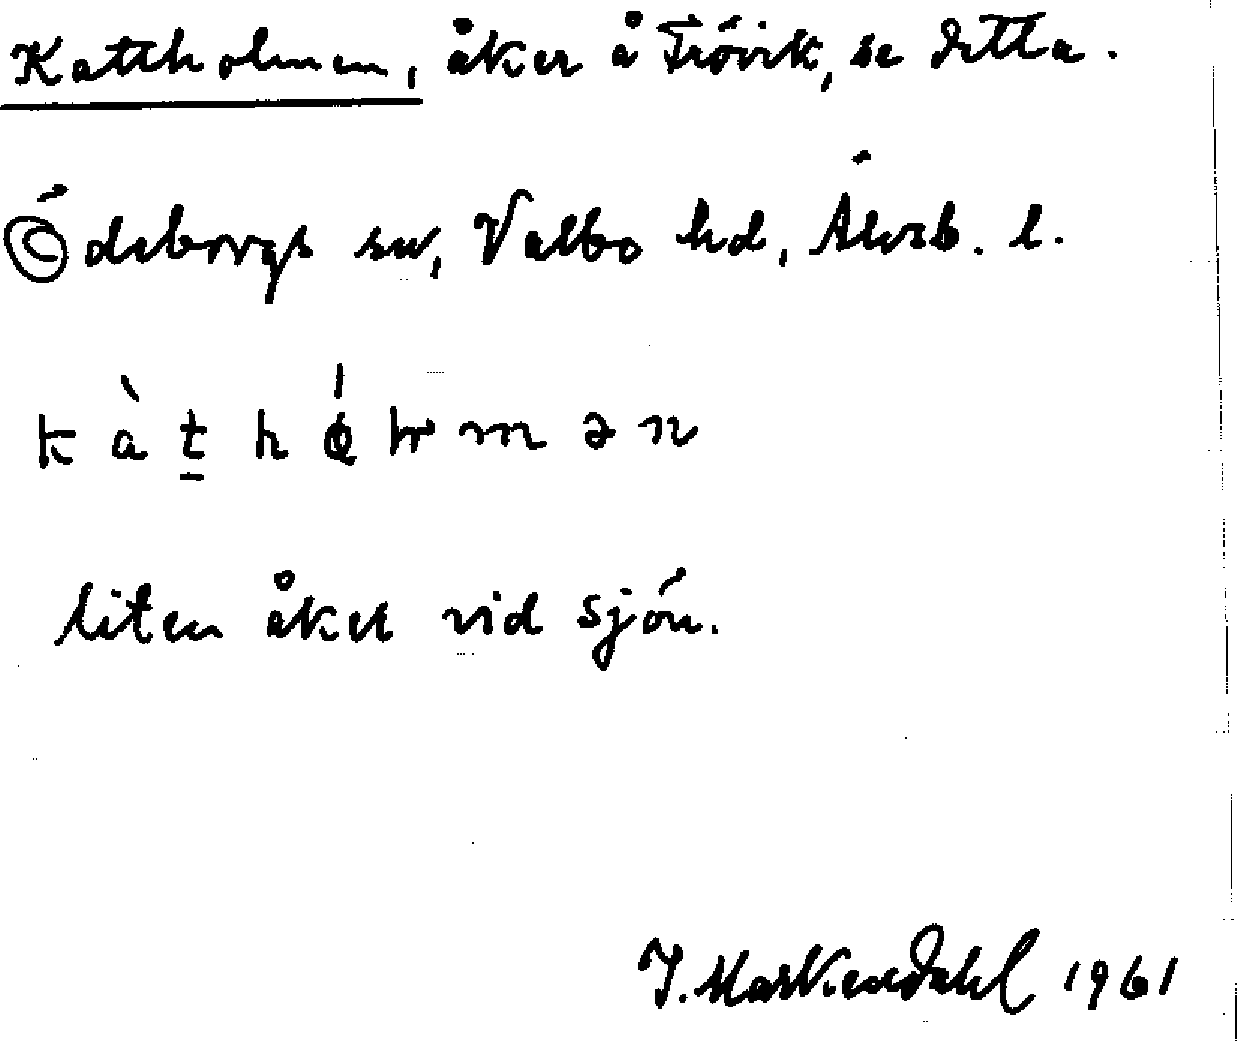 Kattholmen, åker å Trövik, se detta.
Ödeborgs sn, Valbo hd, Älvsb. l.
liten åker vid sjön.
J. Markendahl 1961